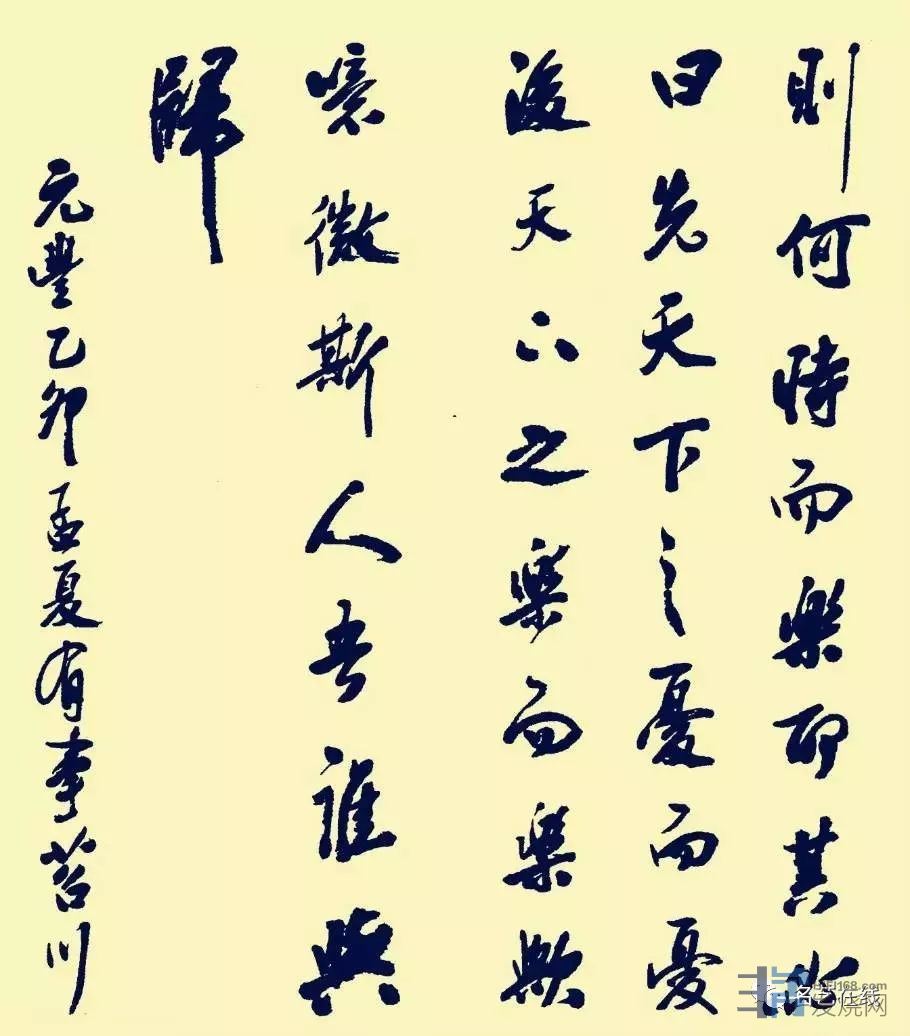 則何時而樂耶其必
曰先天下之憂而憂
後天下之樂而樂歟
噫微斯人吾誰與
歸
元豐乙卯孟夏有事苕川
名艺在线
发烧网